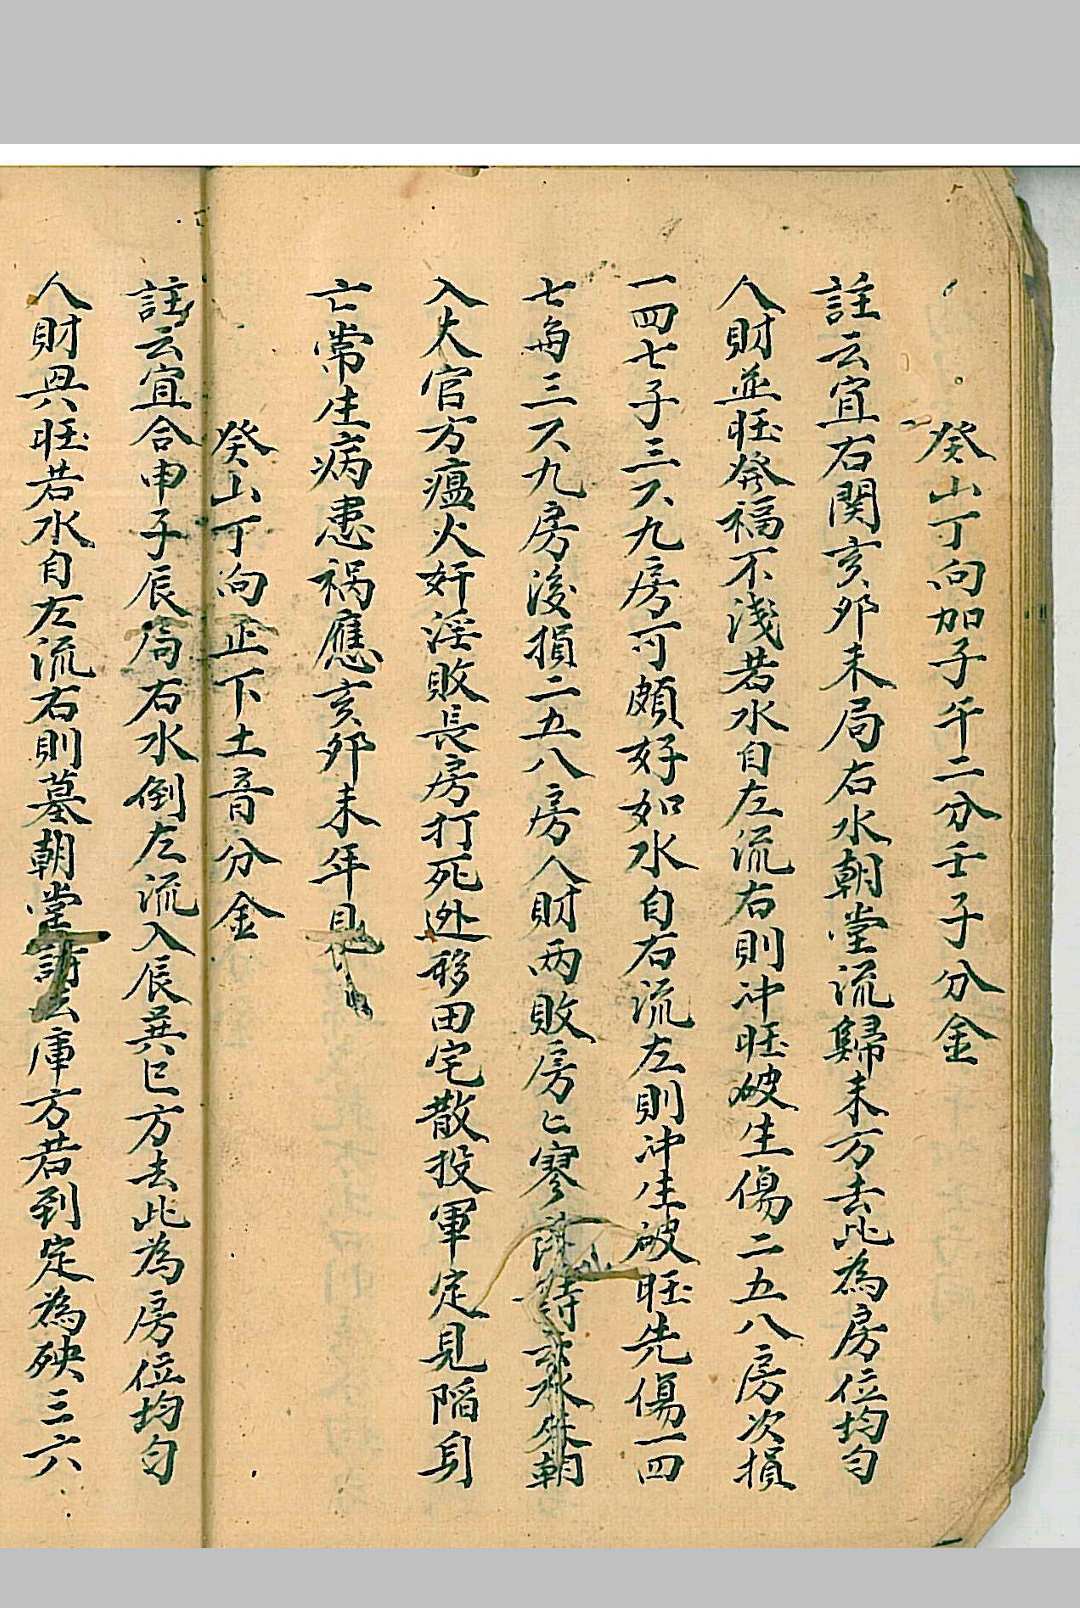 癸山丁向加子午二分壬子分金
註云宜右関亥夘未局右水朝堂流歸未方去此為房位均匀
人財並旺發福不淺若水自左流右則冲旺破生傷二五八房次損
一四七子三六九房可頗好如水自右流左則冲生破旺先傷一四
七每三六九房後損二五八房人財两敗房匕寥水朱朝
入大官方瘟火奸淫敗長房打死迯移田宅散投軍定見陷身
亡常生病患禍應亥夘未年見
癸山丁向正下土音分金
註云宜合申子辰局右水倒左流入辰巽巳方去此為房位均匀
人財興旺若水自左流右則墓朝堂庫方若到定為殃三六